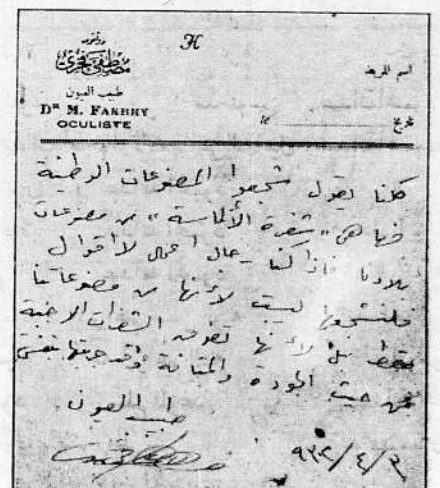 H
دكتور
مصطفى فخرى
طبيب العيون
Dr M. FAKHRY
OCULISTE
اسم المريض
تحريراً
كلنا يقول شجعوا المصنوعات الوطنية
فها هى « شفرة الألماسة » من مصنوعات
بلادنا فاذا كنا رجال اعمال لا اقوال
فلنشجعها ليست لأنها من مصنوعاتنا
فقط بل لأنها تفوق الشفرات الاجنبية
من حيث الجودة والمتانة وقد جربتها بنفسى
طبيب العيون
٩٣٢/٤/٣